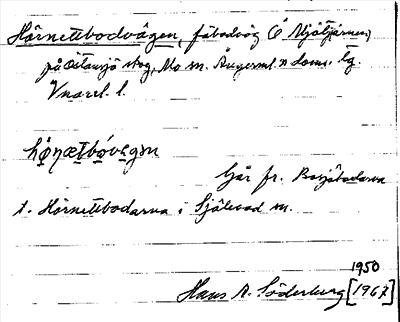 Hörnettbodvägen, fäbodväg (Ö Mjötjärnen)
på Oitansjö skog, Mo sn. Ångerml.
Vnorrl. l.
hǫ́nætbovegən
Går fr. Bosjöbodarna
t. Hörnettbodarna i Själevad sn.
1950
Hans R. Söderberg [1967]